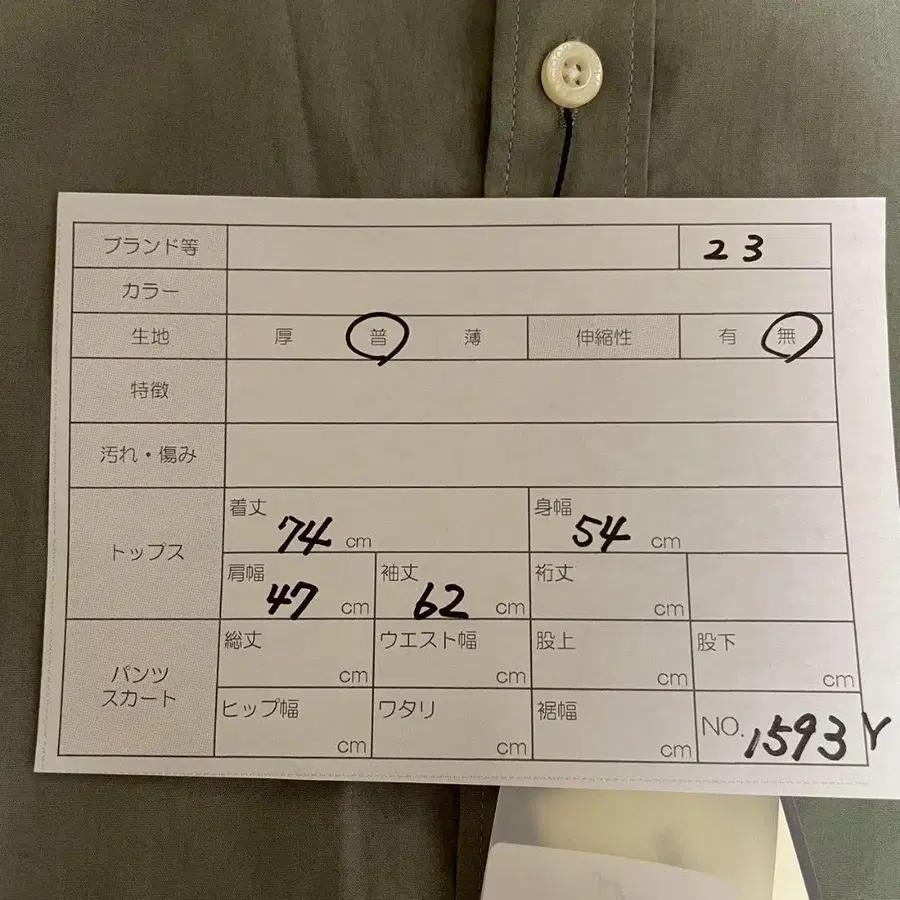 ブランド等 23
カラー
生地 厚 普 薄 伸縮性 有 無
特徴
汚れ・傷み
トップス
着丈 74 cm 身幅 54 cm
肩幅 47 cm 袖丈 62 cm 裄丈 cm
パンツ
スカート
総丈 cm ウエスト幅 cm 股上 cm 股下 cm
ヒップ幅 cm ワタリ cm 裾幅 cm NO. 1593Y